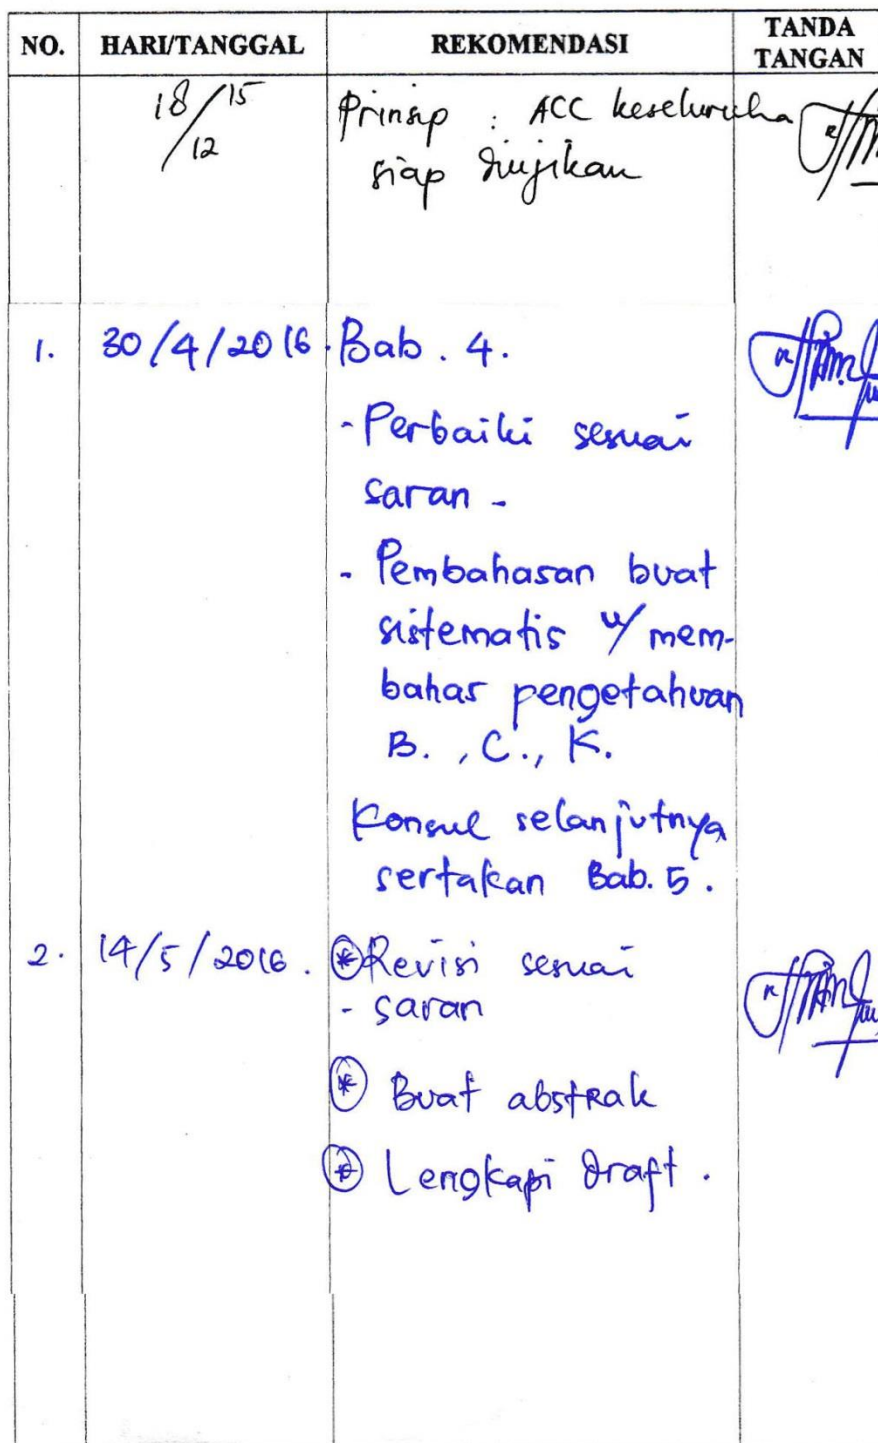 NO. HARI/TANGGAL REKOMENDASI TANDA TANGAN
18/12 15 Prinsip : ACC keseluruha
siap diujikan
1. 30/4/2016. Bab. 4.
- Perbaiki sesuai
saran -
- Pembahasan buat
sistematis u/ mem-
bahas pengetahuan
B., C., K.
Konsul selanjutnya
sertakan Bab. 5.
2. 14/5/2016. * Revisi sesuai
- saran
* Buat abstrak
* Lengkapi draft.